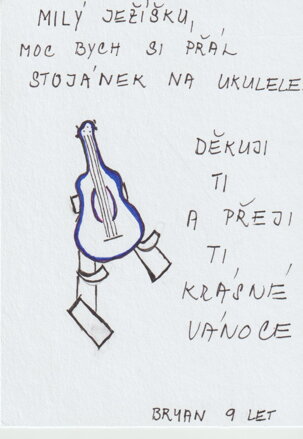 MILÝ JEŽÍŠKU,
MOC BYCH SI PŘÁL
STOJÁNEK NA UKULELE
DĚKUJI
TI
A PŘEJI
TI
KRÁSNÉ
VÁNOCE
BRYAN 9 LET